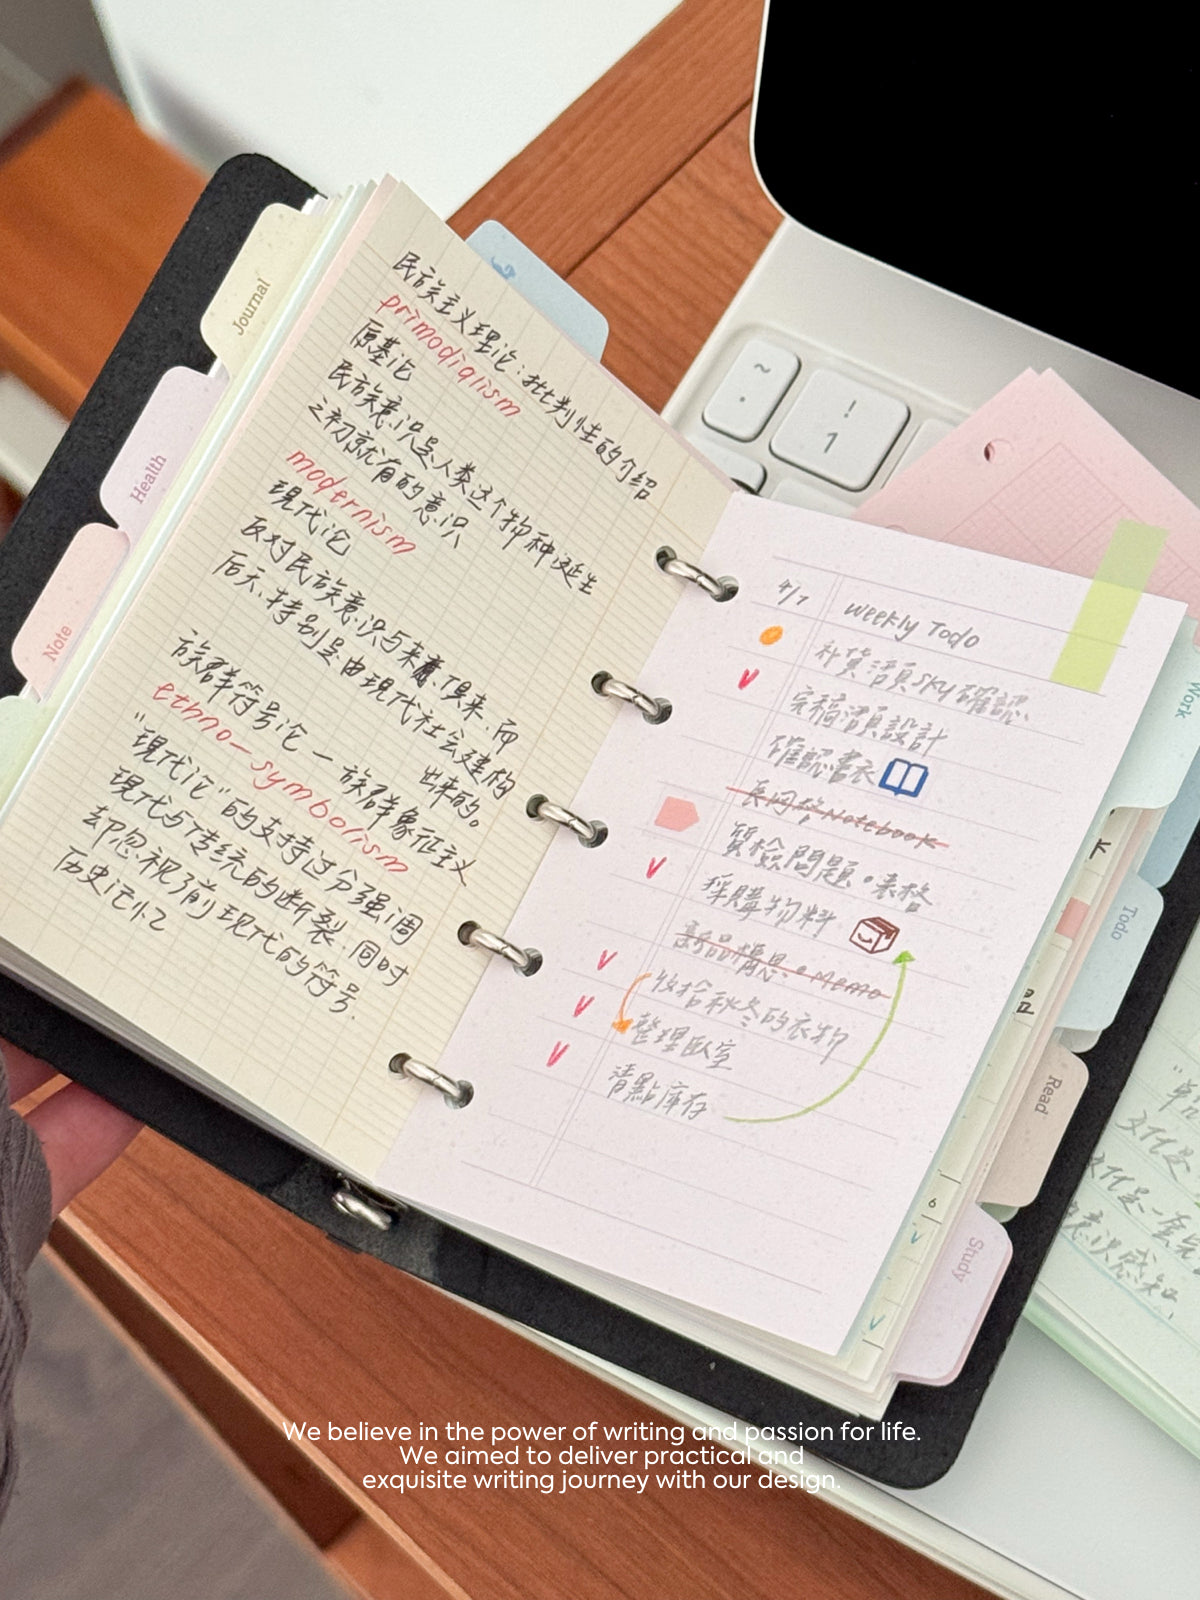 Journal
Health
Note
民族主义理论：批判性的介绍
primodialism
原基论
民族意识是人类这个物种诞生
之初就有的意识
modernism
现代论
反对民族意识与来俱来，而
后天，特别是由现代社会建构
出来的。
族群符号论 — 族群象征主义
ethno-symbolism
"现代论"的支持过分强调
现代与传统的断裂，同时
却忽视了前现代的符号，
历史记忆
~
!
1
4/7
Weekly Todo
补货活頁sku確認
完稿活頁設計
確認書衣
長网格Notebook
質檢問題·表格
採購物料
新品構思·Memo
收拾秋冬的衣物
整理臥室
清點庫存
Work
Todo
Read
6
Study
We believe in the power of writing and passion for life.
We aimed to deliver practical and
exquisite writing journey with our design.